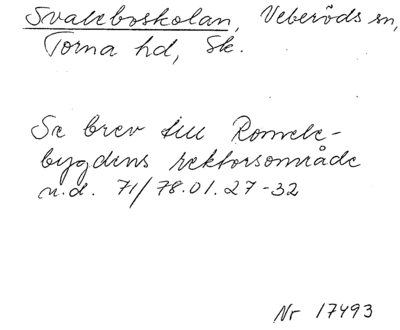 Svaleboskolan, Veberöds sn,
Torna hd, Sk.
Se brev till Romele-
bygdens rektorsområde
u.d. 71/78.01.27-32
Nr 17493